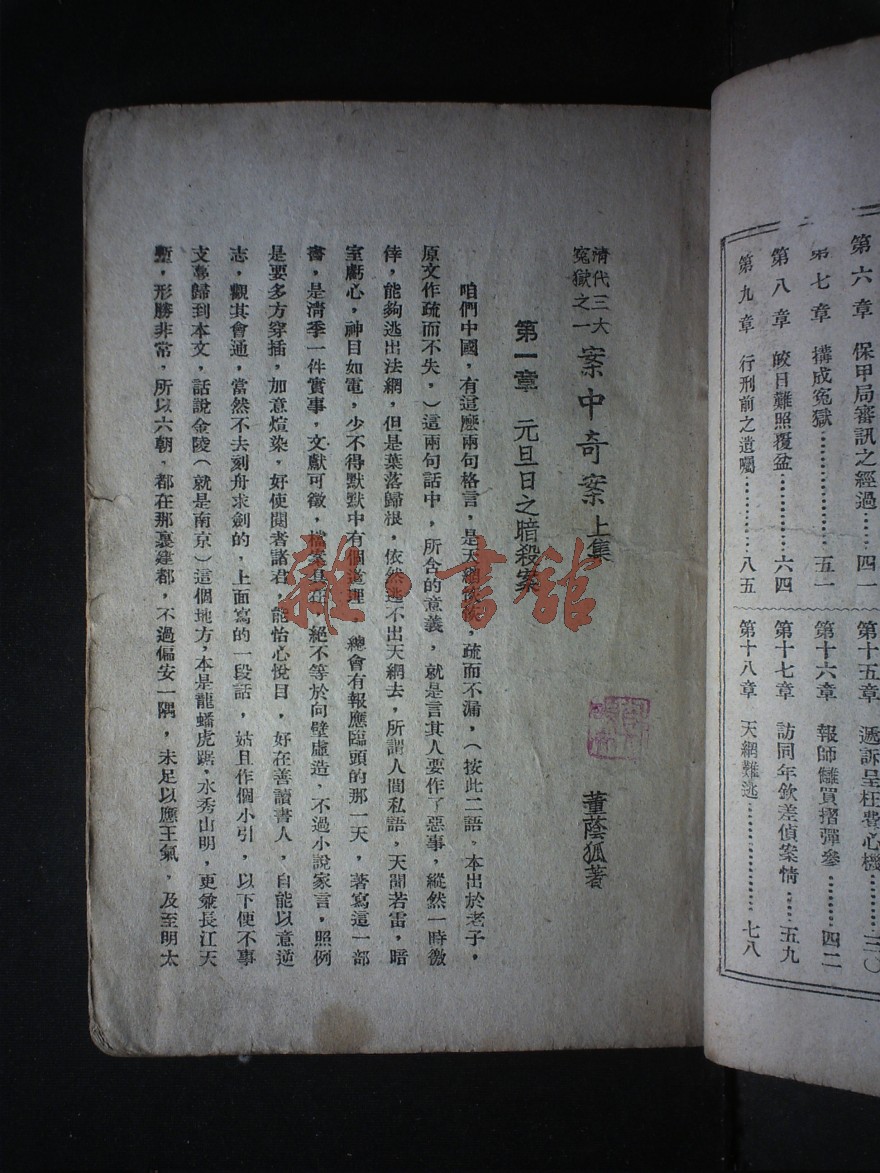 第六章　保甲局審訊之經過……四一
第七章　構成冤獄……五一
第八章　皎日難照覆盆……六四
第九章　行刑前之遺囑……八五
第十五章　遞訴呈枉費心機……三〇
第十六章　報師讎買摺彈參……四二
第十七章　訪同年欽差偵案情……五九
第十八章　天網難逃……七八
清代三大
冤獄之一
案中奇案上集
董蔭狐著
第一章　元旦日之暗殺案
咱們中國，有這麼兩句格言，是天網恢恢，疏而不漏，（按此二語，本出於老子，
原文作疏而不失，）這兩句話中，所含的意義，就是言其人要作了惡事，縱然一時徼
倖，能夠逃出法網，但是葉落歸根，依然逃不出天網去，所謂人間私語，天聞若雷，暗
室虧心，神目如電，少不得默默中有個道理，總會有報應臨頭的那一天，著寫這一部
書，是淸季一件實事，文獻可徵，檔案具在，絕不等於向壁虛造，不過小說家言，照例
是要多方穿插，加意煊染，好使閱者諸君，能怡心悅目，好在善讀書人，自能以意逆
志，觀其會通，當然不去刻舟求劍的，上面寫的一段話，姑且作個小引，以下便不事
支蔓歸到本文，話說金陵（就是南京）這個地方，本是龍蟠虎踞，水秀山明，更兼長江天
塹，形勝非常，所以六朝，都在那裏建都，不過偏安一隅，未足以應王氣，及至明太
雜·書館